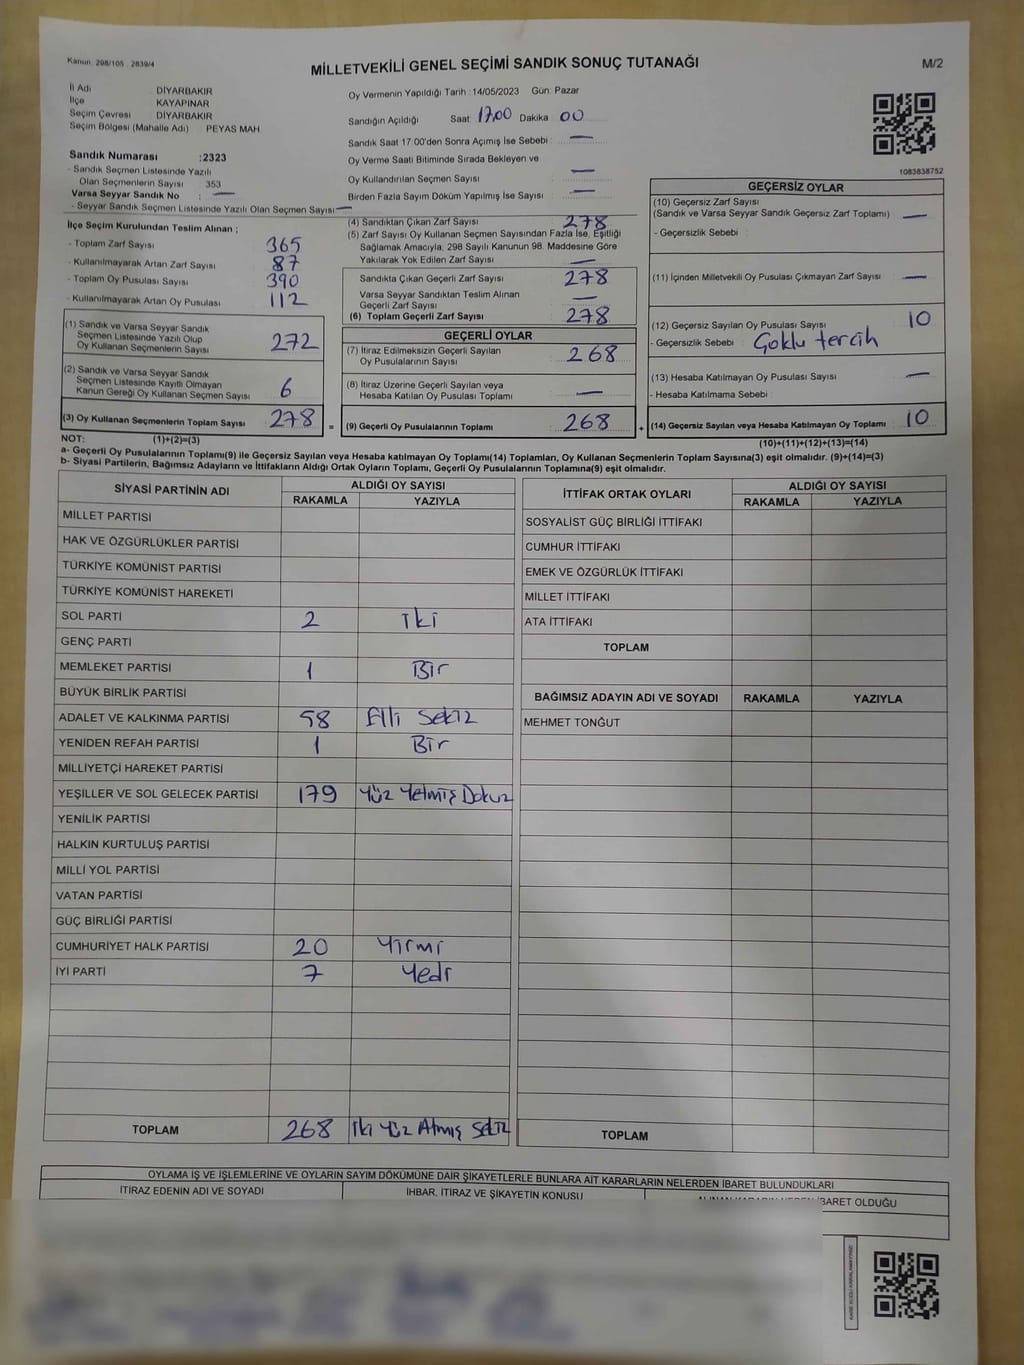 Kanun. 298/105 . 2839/4
MİLLETVEKİLİ GENEL SEÇİMİ SANDIK SONUÇ TUTANAĞI
M/2
İl Adı : DİYARBAKIR
İlçe : KAYAPINAR
Seçim Çevresi : DİYARBAKIR
Seçim Bölgesi (Mahalle Adı) PEYAS MAH.
Sandık Numarası :2323
- Sandık Seçmen Listesinde Yazılı
Olan Seçmenlerin Sayısı : 353
Varsa Seyyar Sandık No : —
- Seyyar Sandık Seçmen Listesinde Yazılı Olan Seçmen Sayısı: —
Oy Vermenin Yapıldığı Tarih :14/05/2023 Gün: Pazar
Sandığın Açıldığı Saat 17.00 Dakika 00
Sandık Saat 17.00'den Sonra Açımış İse Sebebi : —
Oy Verme Saati Bitiminde Sırada Bekleyen ve
Oy Kullandırılan Seçmen Sayısı : —
Birden Fazla Sayım Döküm Yapılmış İse Sayısı : —
1083838752
İlçe Seçim Kurulundan Teslim Alınan ;
- Toplam Zarf Sayısı : 365
- Kullanılmayarak Artan Zarf Sayısı : 87
- Toplam Oy Pusulası Sayısı : 390
- Kullanılmayarak Artan Oy Pusulası : 112
(1) Sandık ve Varsa Seyyar Sandık
Seçmen Listesinde Yazılı Olup
Oy Kullanan Seçmenlerin Sayısı : 272
(2) Sandık ve Varsa Seyyar Sandık
Seçmen Listesinde Kayıtlı Olmayan
Kanun Gereği Oy Kullanan Seçmen Sayısı : 6
(3) Oy Kullanan Seçmenlerin Toplam Sayısı : 278
(4) Sandıktan Çıkan Zarf Sayısı : 278
(5) Zarf Sayısı Oy Kullanan Seçmen Sayısından Fazla İse, Eşitliği
Sağlamak Amacıyla; 298 Sayılı Kanunun 98. Maddesine Göre
Yakılarak Yok Edilen Zarf Sayısı : —
Sandıkta Çıkan Geçerli Zarf Sayısı : 278
Varsa Seyyar Sandıktan Teslim Alınan
Geçerli Zarf Sayısı : —
(6) Toplam Geçerli Zarf Sayısı : 278
GEÇERLİ OYLAR
(7) İtiraz Edilmeksizin Geçerli Sayılan
Oy Pusulalarının Sayısı : 268
(8) İtiraz Üzerine Geçerli Sayılan veya
Hesaba Katılan Oy Pusulası Toplamı : —
= (9) Geçerli Oy Pusulalarının Toplamı : 268
GEÇERSİZ OYLAR
(10) Geçersiz Zarf Sayısı
(Sandık ve Varsa Seyyar Sandık Geçersiz Zarf Toplamı) : —
- Geçersizlik Sebebi :
(11) İçinden Milletvekili Oy Pusulası Çıkmayan Zarf Sayısı : —
(12) Geçersiz Sayılan Oy Pusulası Sayısı : 10
- Geçersizlik Sebebi : Çoklu tercih
(13) Hesaba Katılmayan Oy Pusulası Sayısı : —
- Hesaba Katılmama Sebebi :
+ (14) Geçersiz Sayılan veya Hesaba Katılmayan Oy Toplamı : 10
NOT: (1)+(2)=(3)
(10)+(11)+(12)+(13)=(14)
a- Geçerli Oy Pusulalarının Toplamı(9) ile Geçersiz Sayılan veya Hesaba katılmayan Oy Toplamı(14) Toplamları, Oy Kullanan Seçmenlerin Toplam Sayısına(3) eşit olmalıdır. (9)+(14)=(3)
b- Siyasi Partilerin, Bağımsız Adayların ve İttifakların Aldığı Ortak Oyların Toplamı, Geçerli Oy Pusulalarının Toplamına(9) eşit olmalıdır.
SİYASİ PARTİNİN ADI ALDIĞI OY SAYISI
RAKAMLA YAZIYLA
MİLLET PARTİSİ
HAK VE ÖZGÜRLÜKLER PARTİSİ
TÜRKİYE KOMÜNİST PARTİSİ
TÜRKİYE KOMÜNİST HAREKETİ
SOL PARTİ 2 iki
GENÇ PARTİ
MEMLEKET PARTİSİ 1 Bir
BÜYÜK BİRLİK PARTİSİ
ADALET VE KALKINMA PARTİSİ 58 Elli Sekiz
YENİDEN REFAH PARTİSİ 1 Bir
MİLLİYETÇİ HAREKET PARTİSİ
YEŞİLLER VE SOL GELECEK PARTİSİ 179 Yüz Yetmiş Dokuz
YENİLİK PARTİSİ
HALKIN KURTULUŞ PARTİSİ
MİLLİ YOL PARTİSİ
VATAN PARTİSİ
GÜÇ BİRLİĞİ PARTİSİ
CUMHURİYET HALK PARTİSİ 20 Yirmi
İYİ PARTİ 7 Yedi
TOPLAM 268 İki Yüz Atmış Sekiz
İTTİFAK ORTAK OYLARI ALDIĞI OY SAYISI
RAKAMLA YAZIYLA
SOSYALİST GÜÇ BİRLİĞİ İTTİFAKI
CUMHUR İTTİFAKI
EMEK VE ÖZGÜRLÜK İTTİFAKI
MİLLET İTTİFAKI
ATA İTTİFAKI
TOPLAM
BAĞIMSIZ ADAYIN ADI VE SOYADI RAKAMLA YAZIYLA
MEHMET TONĞUT
TOPLAM
OYLAMA İŞ VE İŞLEMLERİNE VE OYLARIN SAYIM DÖKÜMÜNE DAİR ŞİKAYETLERLE BUNLARA AİT KARARLARIN NELERDEN İBARET BULUNDUKLARI
İTİRAZ EDENİN ADI VE SOYADI İHBAR, İTİRAZ VE ŞİKAYETİN KONUSU İBARET OLDUĞU